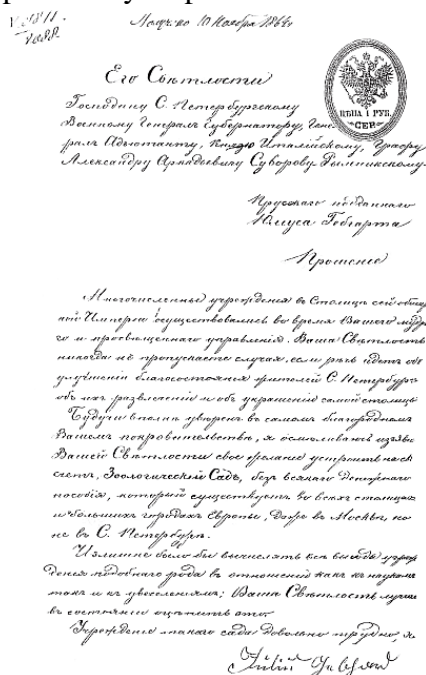 Получено 10 Ноября 1864
Его Свѣтлости
Господину С. Петербургскому
Военному Генералъ Губернатору, Гене
ралъ Адъютанту, Князю Италійскому, Графу
Александру Аркадьевичу Суворову Рымникскому.
ЦѢНА 1 РУБ.
СЕР.
Прусскаго подданнаго
Юлиуса Гебгарта
Прошеніе
Многочисленныя учрежденія въ Столицѣ сей обшир
ной Имперіи осуществовались во время Вашего мудра
го и просвѣщеннаго управленія. Ваша Свѣтлость
никогда не пропускаете случая, если рѣчь идетъ объ
улучшеніи благосостоянія жителей С. Петербурга
объ ихъ развлеченіи и объ украшеніи самой столицы
Будучи вполнѣ увѣренъ въ самомъ благородномъ
Вашемъ покровительствѣ, я осмѣливаюсь изъяв
Вашей Свѣтлости свое желаніе устроить на св
счетъ, Зоологическій Садъ, безъ всякаго денежнаго
пособія, который существуетъ во всѣхъ столицахъ
и большихъ городахъ Европы, даже въ Москвѣ, но
не въ С. Петербургѣ.
Излишне было бы вычислять всѣ выгоды учреж
денія подобнаго рода въ отношеніи какъ къ наукамъ
такъ и къ увеселеніямъ; Ваша Свѣтлость лучше
въ состояніи оцѣнить это.
Учрежденіе такого сада довольно трудно, я
Julius Gebhard